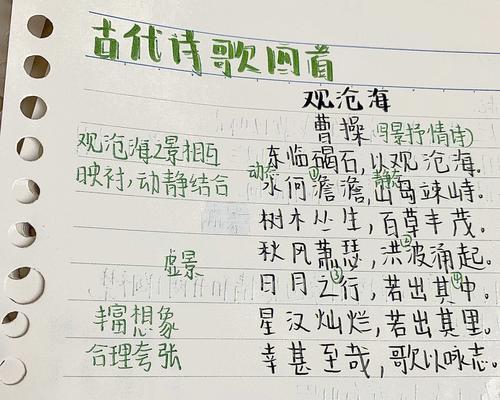 古代诗歌四首
观沧海
曹操 (写景抒情诗)
观沧海之景相互
映衬,动静结合
东临碣石,以观沧海。
动态 ① 静态
水何澹澹,山岛竦峙。
树木丛生,百草丰茂。
秋风萧瑟,洪波涌起。
②
虚景
日月之行,若出其中。
③ ④
丰富想象
星汉灿烂,若出其里。
合理夸张
幸甚至哉,歌以咏志。